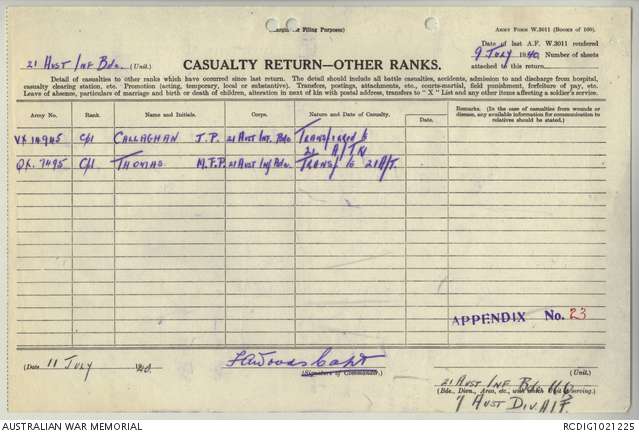 (Margin for Filing Purposes)
Army Form W.3011 (Books of 100).
21 Aust Inf Bde. (Unit.)
Date of last A.F. W.3011 rendered
9 July 1940 Number of sheets
attached to this return.
CASUALTY RETURN—OTHER RANKS.
Detail of casualties to other ranks which have occurred since last return. The detail should include all battle casualties, accidents, admission to and discharge from hospital,
casualty clearing station, etc. Promotion (acting, temporary, local or substantive). Transfers, postings, attachments, etc., courts-martial, field punishment, forfeiture of pay, etc.
Leave of absence, particulars of marriage and birth or death of children, alteration in next of kin with postal address, transfers to "X" List and any other items affecting a soldier's service.
Army No. Rank. Name and Initials. Corps. Nature and Date of Casualty. Date. Remarks. (In the case of casualties from wounds or disease, any available information for communication to relatives should be stated.)
VX 14945 Cpl CALLAGHAN J.P. 21 Aust Inf. Bde Transferred to
21 A/T
QX. 7495 Cpl THOMAS M.F.P. 21 Aust Inf Bde. Transf to 21 A/T.
APPENDIX No. 23
(Date 11 July 1940.
Capt
(Signature of Commander.)
(Unit.)
21 Aust Inf Bde HQ
(Bde., Divn., Area, etc., with which Unit is serving.)
7 Aust Div. AIF.
AUSTRALIAN WAR MEMORIAL
RCDIG1021225